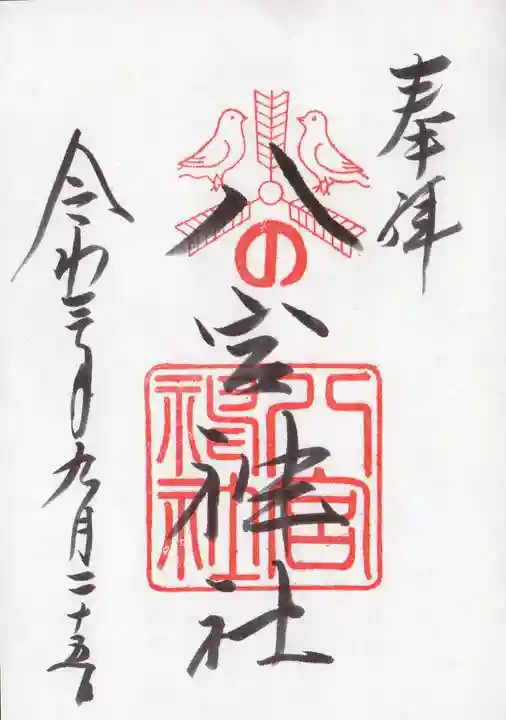 奉拝
八宮神社
の
八宮神社
令和三年九月二十五日